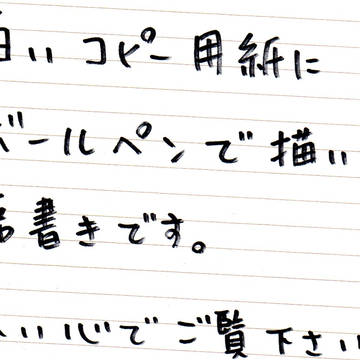 白いコピー用紙に
ボールペンで描い
書きです。
い心でご覧下さい